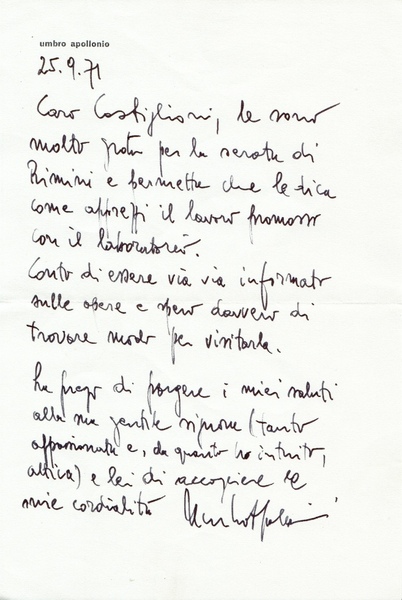 umbro apollonio
25.9.71
Caro Castiglioni, le sono
molto grato per la serata di
Rimini e permetta che le dica
come apprezzi il lavoro promosso
con il laboratorio.
Conto di essere via via informato
sulle opere e spero davvero di
trovare modo per visitarla.
La prego di porgere i miei saluti
alla sua gentile signora (tanto
appassionata e, da quanto ho intuito,
attiva) e lei di accogliere le
mie cordialità Umbro Apollonio